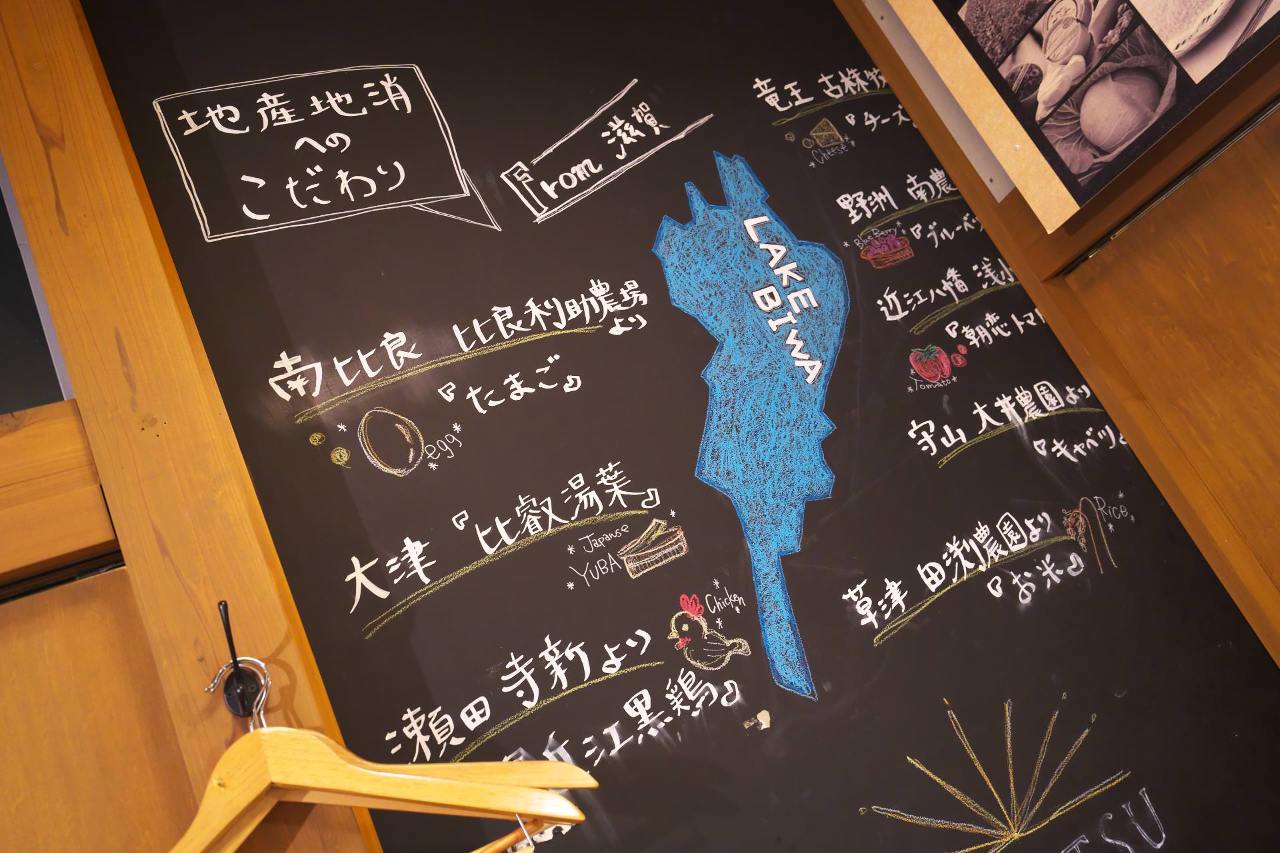 地産地消
への
こだわり
From 滋賀
LAKE
BIWA
南比良 比良利助農場
より
『たまご』
egg
大津 『比叡湯葉』
Japanse
YUBA
瀬田 寺新より
近江黒鶏』
Chicken
竜王 古株牧
『チーズ
Cheese
野洲 南農
Blue Berry
『ブルーベ
近江八幡 浅小
『朝恋トマ
Tomato
守山 大井農園より
『キャベツ』
草津 田渕農園より
『お米』
Rice
TSU